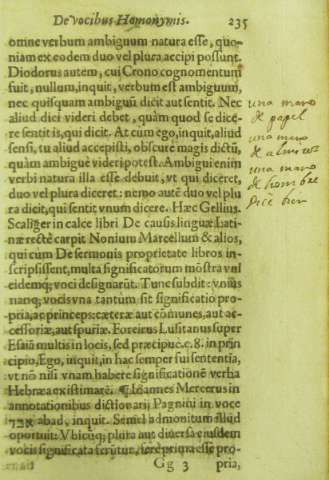 De Vocibus Homonymis. 235
omne verbum ambiguum natura esse, quo-
niam ex eodem duo vel plura accipi possunt.
Diodorus autem, cui Crono cognomentum
fuit, nullum, inquit, verbum est ambiguum,
nec quisquam ambiguū dicit aut sentit. Nec
aliud dici videri debet, quàm quod se dice-
re sentit is, qui dicit. At cum ego, inquit, aliud
sensi, tu aliud accepisti, obscure magis dictū,
quàm ambiguè videri potest. Ambigui enim
verbi natura illa esse debuit, vt qui diceret,
duo vel plura diceret: nemo autē duo vel plu
ra dicit, qui sentit vnum dicere. Hæc Gellius.
Scaliger in calce libri De causis linguæ Lati-
næ rectè carpit Nonium Marcellum & alios,
qui cum De sermonis proprietate libros in-
scripsissent, multa significatorum mōstra vni
eidemq; voci designarūt. Tunc subdit: vnius
nanq; vocis vna tantum sit significatio pro-
pria, ac princeps: cæteræ aut cōmunes, aut ac-
cessoriæ, aut spuriæ. Foreirus Lusitanus super
Esaiā multis in locis, sed præcipuc c. 8. in prin
cipio, Ego, inquit, in hac semper fui sententia,
vt nō nisi vnam habere significationē verba
Hebræa existimarē. ¶ Ioannes Mercerus in
annotationibus dictionarij Pagnini in voce
אבד abad, inquit. Semel admonitum illud
oportuit: Vbicūq; plura aut diuersa eiusdem
vocis significata ferūtur, ferè propria esse pro-
Gg 3 pria,
una mano
de papel
una mano
de almirez
una mano
de hombre
Dice bien